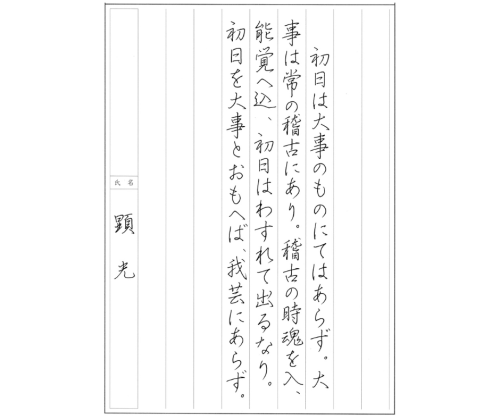 初日は大事のものにてはあらず。大
事は常の稽古にあり。稽古の時魂を入、
能覚へ込、初日はわすれて出るなり。
初日を大事とおもへば、我芸にあらず。
氏名
顕光